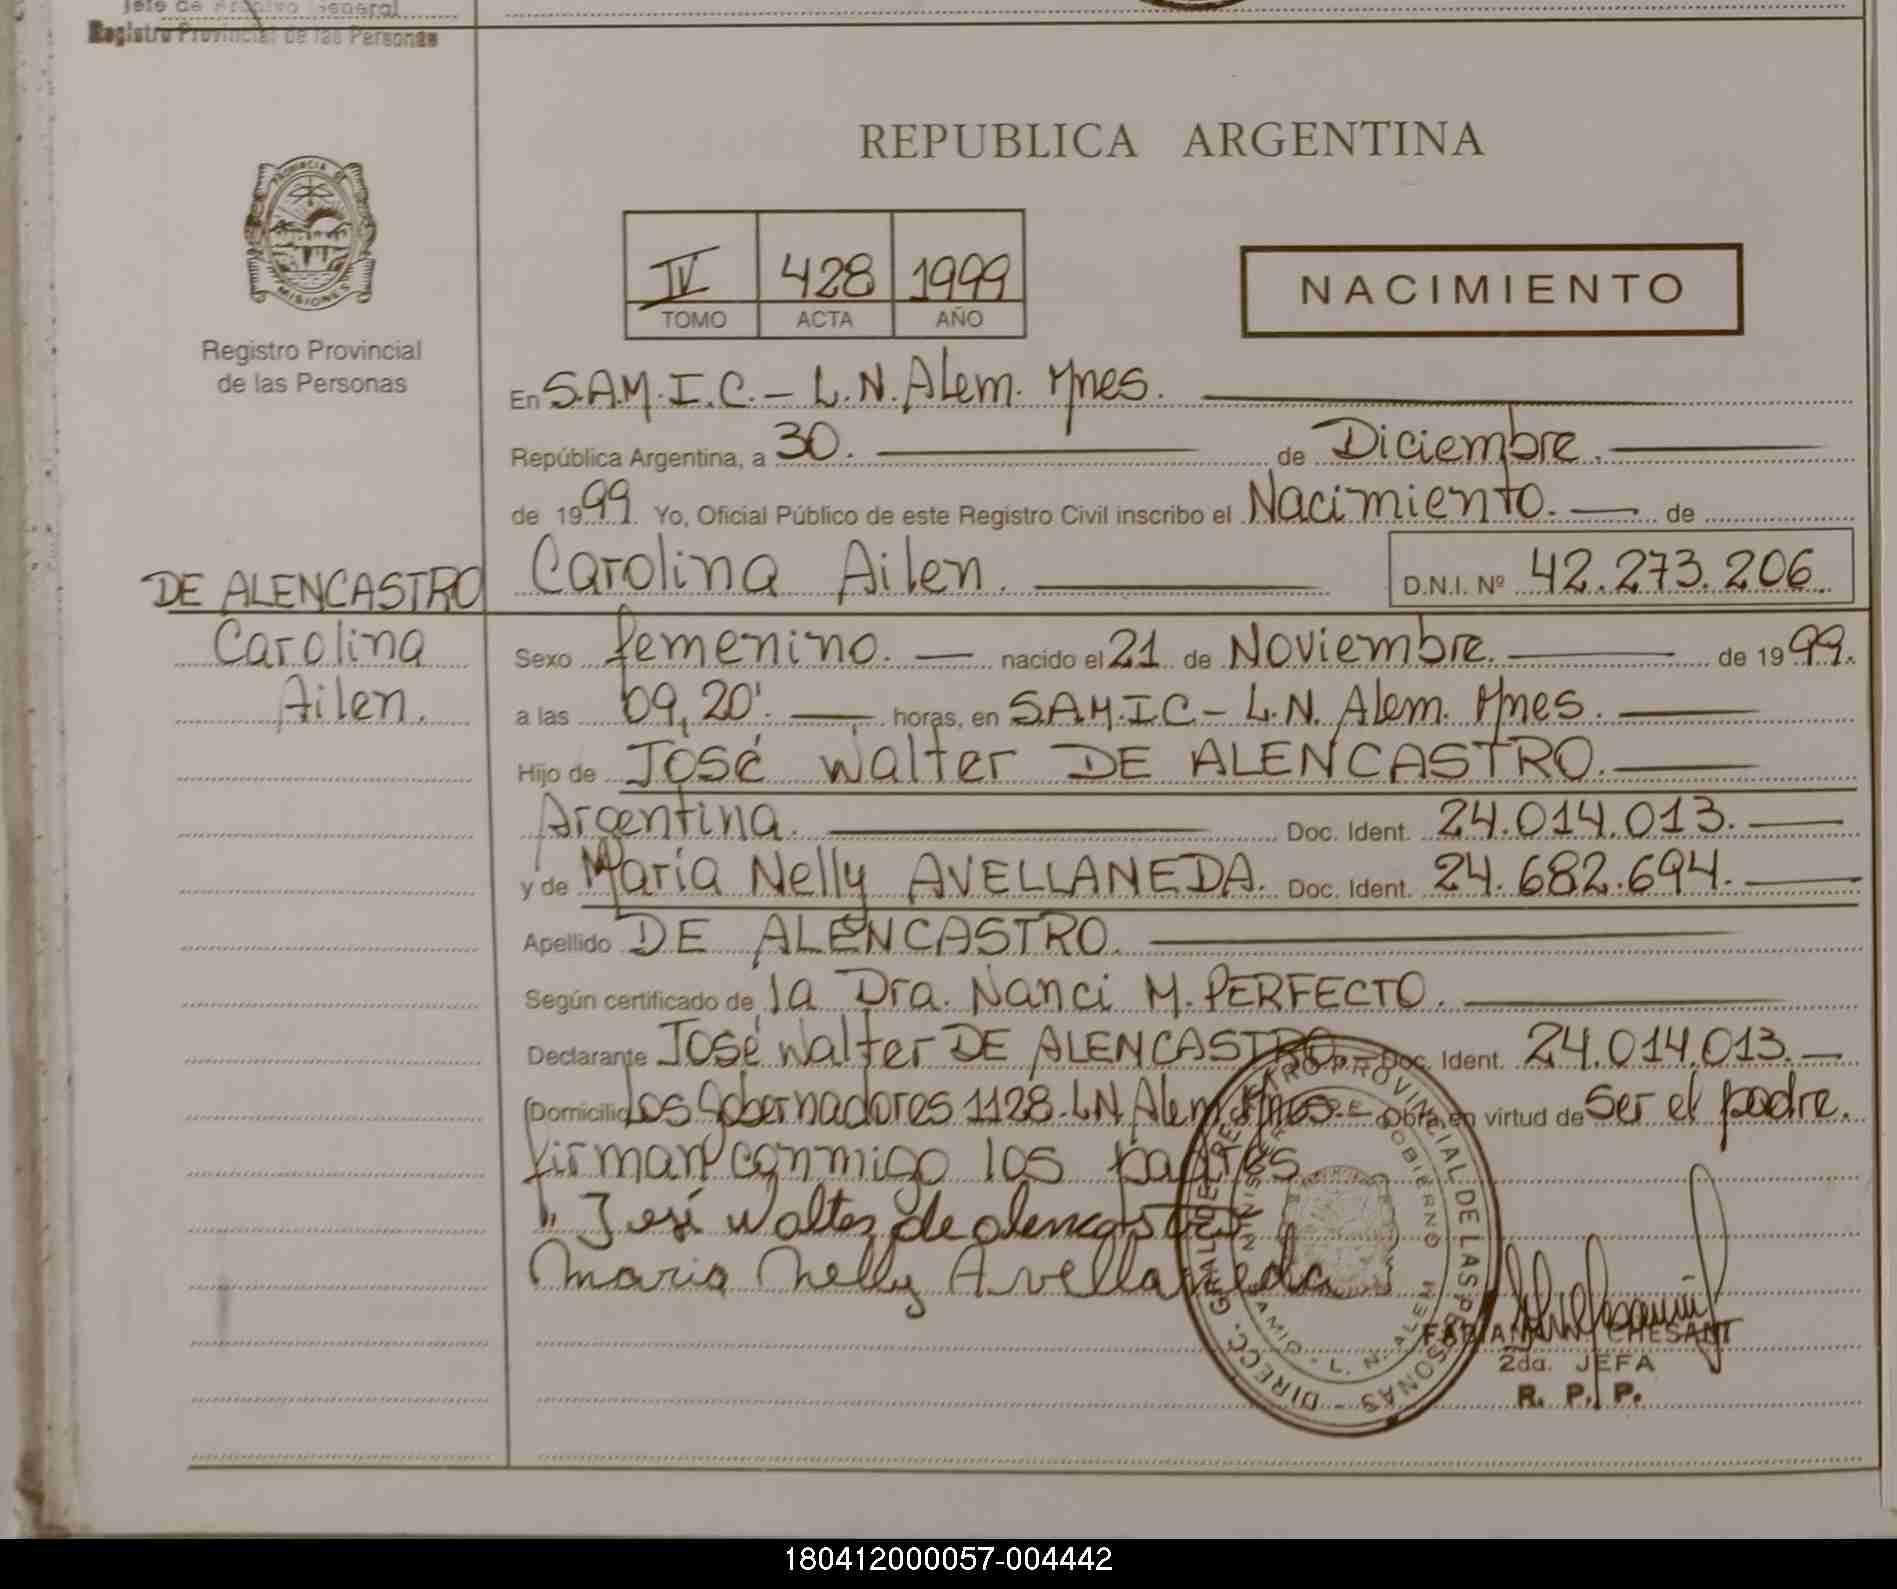 Jefe de Archivo General
Registro Provincial de las Personas
REPUBLICA ARGENTINA
PROVINCIA DE MISIONES
IV 428 1999
TOMO ACTA AÑO
NACIMIENTO
Registro Provincial
de las Personas
En S.A.M.I.C.- L.N. Alem. Mnes.
República Argentina, a 30. de Diciembre.
de 1999. Yo, Oficial Público de este Registro Civil inscribo el Nacimiento. de
DE ALENCASTRO Carolina Ailen. D.N.I. Nº 42.273.206.
Carolina
Ailen.
Sexo femenino. nacido el 21 de Noviembre. de 1999.
a las 09,20'. horas, en S.A.M.I.C- L.N. Alem. Mnes.
Hijo de José Walter DE ALENCASTRO.
Argentina. Doc. Ident. 24.014.013.
y de María Nelly AVELLANEDA. Doc. Ident. 24.682.694.
Apellido DE ALENCASTRO.
Según certificado de la Dra. Nanci M. PERFECTO.
Declarante José Walter DE ALENCASTRO. Doc. Ident. 24.014.013.
Domicilio Los Gobernadores 1128. L.N. Alem Mnes. Obra en virtud de Ser el padre.
firman conmigo los padres.
José Walter de alencastro
Maria Nelly Avellaneda
DIRECC. GRAL. DE REGISTRO PROVINCIAL DE LAS PERSONAS
MINISTERIO DE GOBIERNO
SAMIC - L. N. ALEM
CHESANI
2da. JEFA
R. P. P.
180412000057-004442